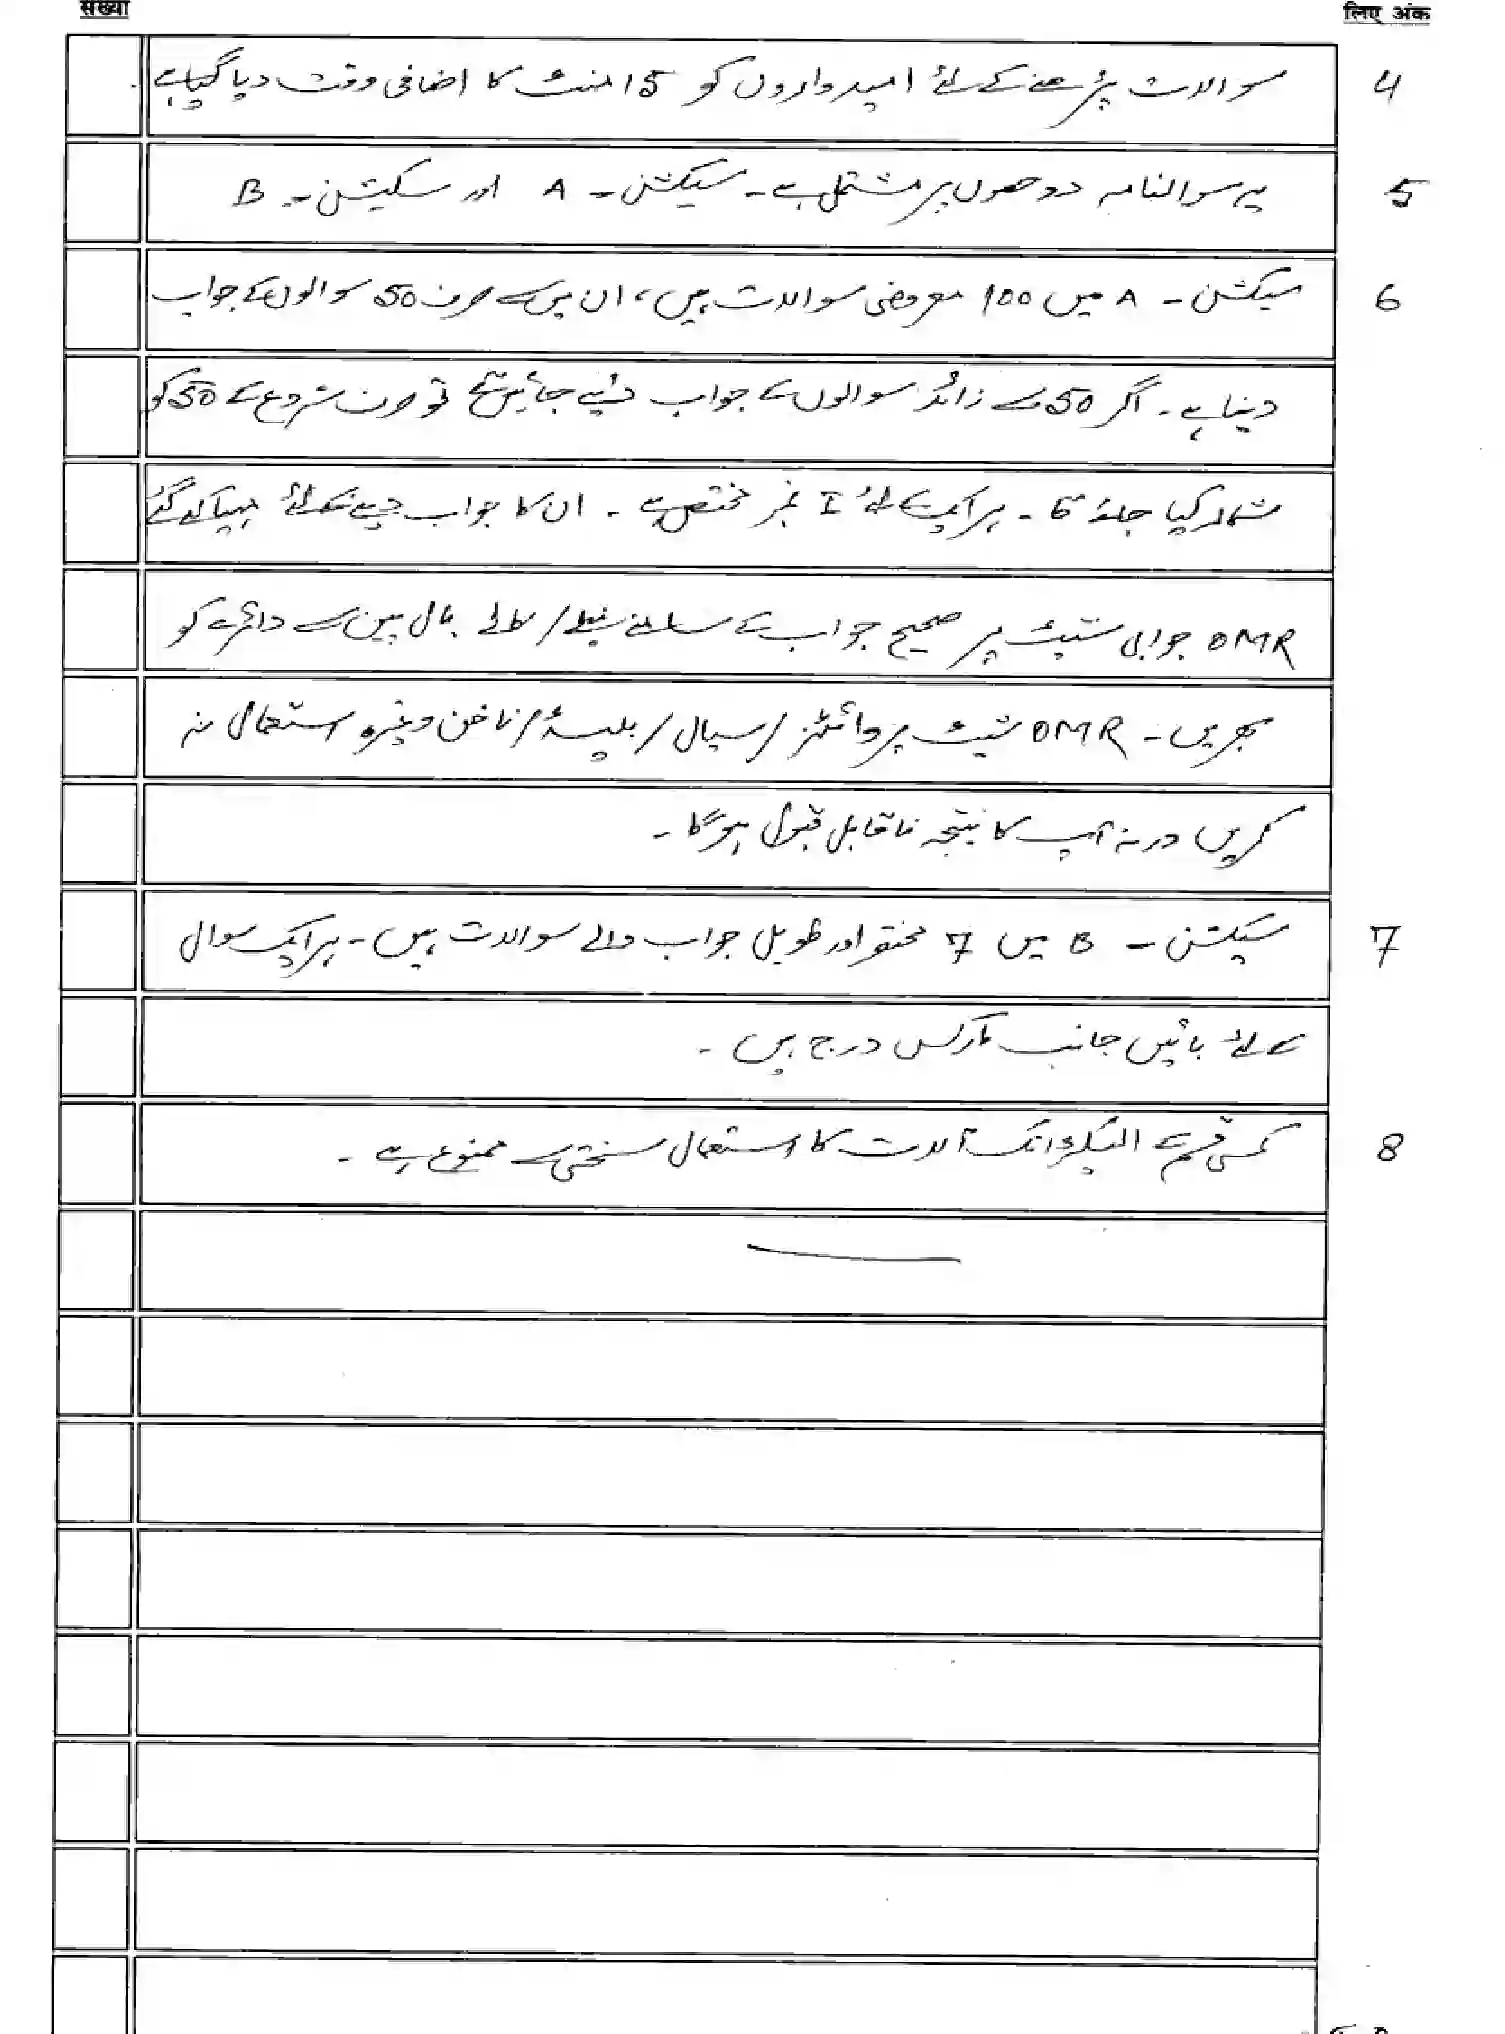 संख्या
लिए अंक
4 سوالات پڑھنے کے لئے امیدواروں کو 15 منٹ کا اضافی وقت دیا گیا ہے
5 یہ سوالنامہ دو حصوں پر مشتمل ہے۔ سیکشن - A اور سکیشن - B
6 سیکشن - A میں 100 معروضی سوالات ہیں، ان میں سے صرف 50 سوالوں کے جواب
دینا ہے۔ اگر 50 سے زائد سوالوں کے جواب دئیے جائیں گے تو صرف شروع کے 50 کو
شمار کیا جائے گا۔ ہر ایک کے لئے 1 نمبر مختص ہے۔ ان کا جواب دینے کے لئے مہیا کئے گئے
OMR جوابی شیٹ پر صحیح جواب کے سامنے نیلے/کالے بال پین سے دائرے کو
بھریں۔ OMR شیٹ پر وائٹنر/سیال/بلیڈ/ناخن وغیرہ استعمال نہ
کریں ورنہ آپ کا نتیجہ ناقابل قبول ہوگا۔
7 سیکشن - B میں 7 مختصر اور طویل جواب والے سوالات ہیں۔ ہر ایک سوال
کے لئے بائیں جانب مارکس درج ہیں۔
8 کسی قسم کے الیکٹرانک آلات کا استعمال سختی سے ممنوع ہے۔